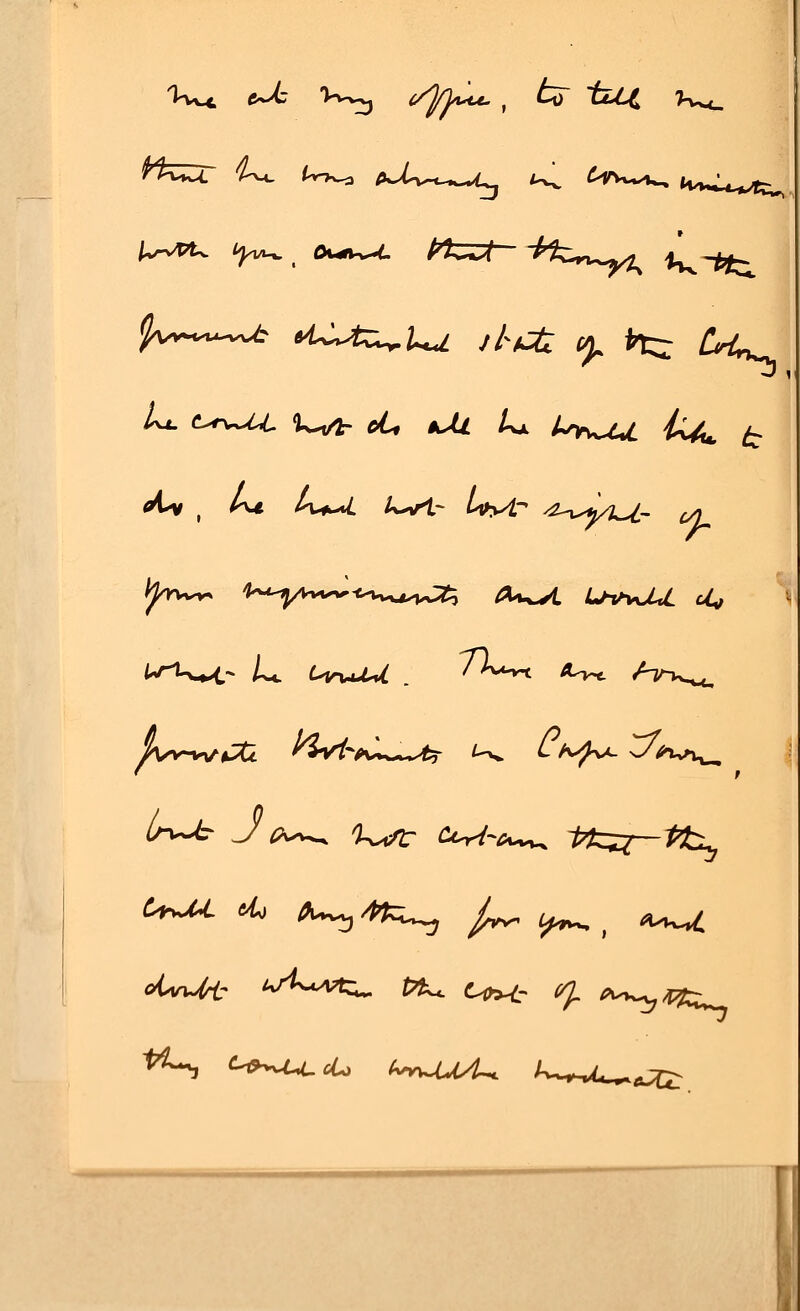 me at my office, to tell me
that he was already in communication
with you, and that though in the
present disturbed state of the Colony,
he could not do all he would like to
do, he had not lost sight of
your requirements and would do
what he could. There are some
private Botanists in Cape Town,
but I am not certain that they
could do anything for you, and
doubt whether the cost of anything
they could do would be moderate.